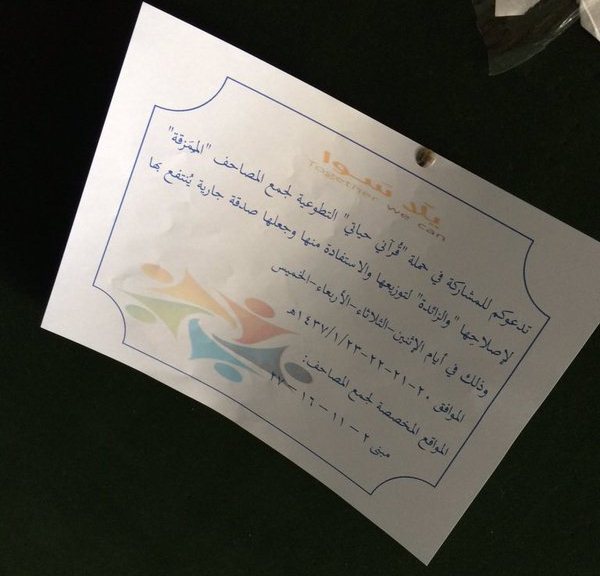 يلا سوا
Together we can
تدعوكم للمشاركة في حملة "قُرآني حياتي" التطوعية لجمع المصاحف "الممَزقة"
لإصلاحِها "والزائدة" لتوزيعها والاستفادة منها وجعلها صدقة جارية يُنتفع بها
وذلك في أيام الإثنين-الثلاثاء-الأربعاء-الخميس
الموافق ٢٠-٢١-٢٢-١٤٣٧/١/٢٣هـ
المواقع المخصصة لجمع المصاحف:
مبنى ٢ – ١١ – ١٦ – ٢٧